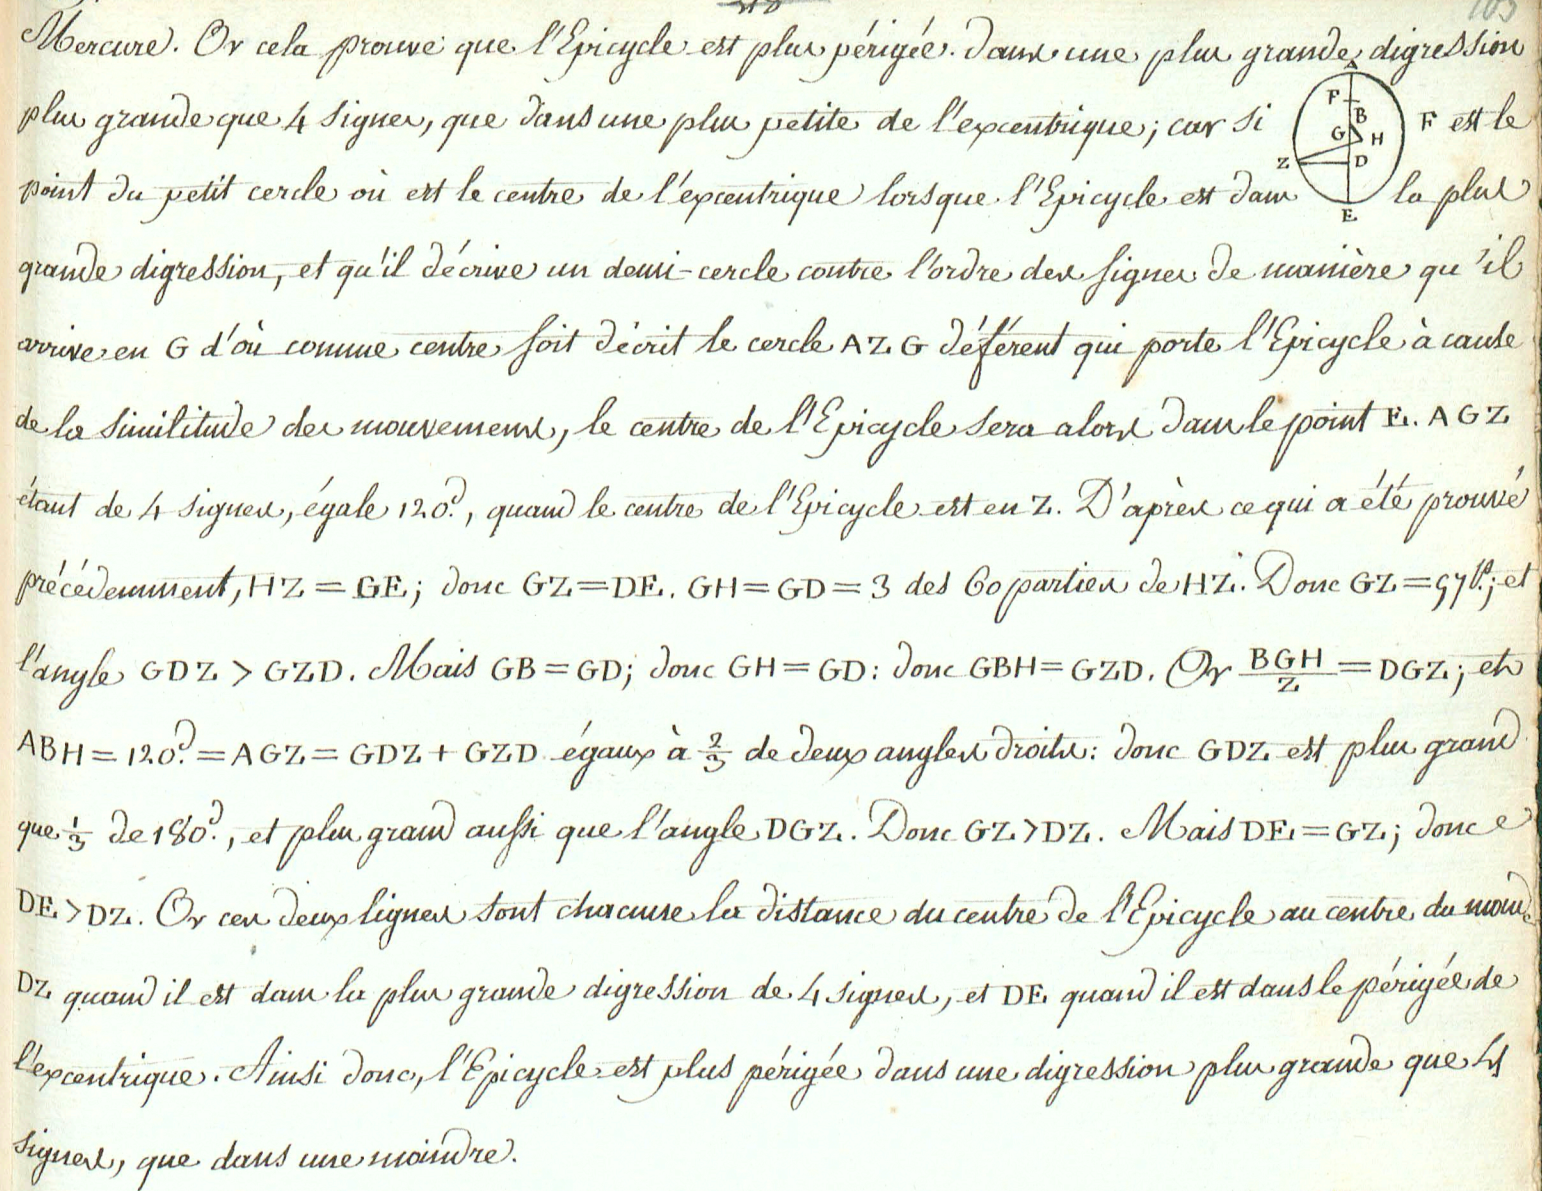 103
Mercure. Or cela prouve que l'Epicycle est plus périgée dans une plus grande digression
plus grande que 4 signes, que dans une plus petite de l'excentrique; car si F est le
A
F
B
G
H
Z
D
E
point du petit cercle où est le centre de l'excentrique lorsque l'Epicycle est dans la plus
grande digression, et qu'il décrive un demi-cercle contre l'ordre des signes de manière qu'il
arrive en G d'où comme centre soit décrit le cercle AZG déférent qui porte l'Epicycle à cause
de la similitude des mouvemens, le centre de l'Epicycle sera alors dans le point E. AGZ
étant de 4 signes, égale 120.d, quand le centre de l'Epicycle est en Z. D'après ce qui a été prouvé
précédemment, HZ = GE; donc GZ = DE. GH = GD = 3 des 60 parties de HZ. Donc GZ = 57 p.; et
l'angle GDZ > GZD. Mais GB = GD; donc GH = GD: donc GBH = GZD. Or BGH/2 = DGZ; et
ABH = 120.d = AGZ = GDZ + GZD égaux à 2/3 de deux angles droits: donc GDZ est plus grand
que 1/3 de 180.d, et plus grand aussi que l'angle DGZ. Donc GZ > DZ. Mais DE = GZ; donc
DE > DZ. Or ces deux lignes sont chacune la distance du centre de l'Epicycle au centre du monde
DZ quand il est dans la plus grande digression de 4 signes, et DE quand il est dans le périgée de
l'excentrique. Ainsi donc, l'Epicycle est plus périgée dans une digression plus grande que 4
signes, que dans une moindre.